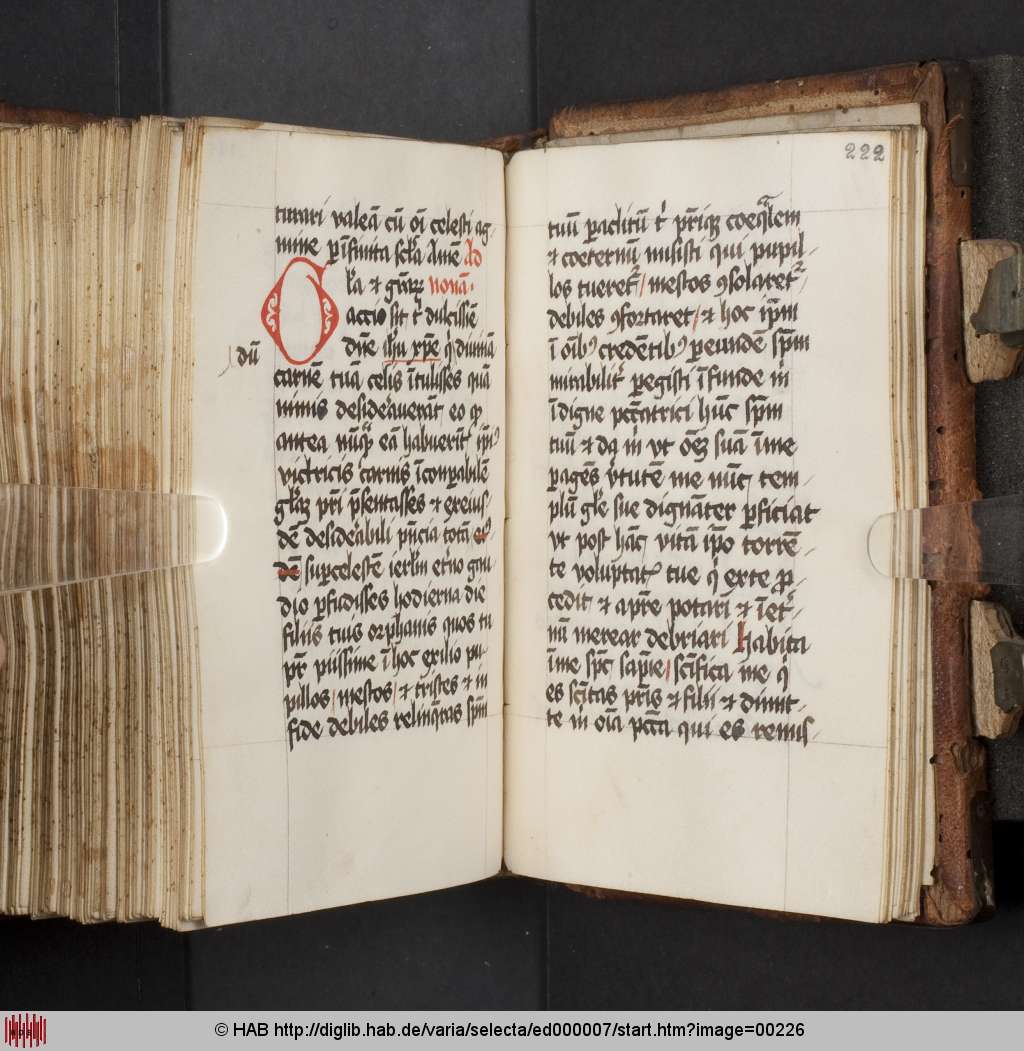 turari valeā cū oī celesti ag-
mine p īfinita sc̄la Amē Ad
lr̄a & gr̄aꝝ nonā·
Gr̄accio sit t' dulcissīe
dūe ih̄u xp̄e q' diuinā
dū
carnē tuā celis ītulisses quā
nimis desiderauerāt eo ꝙ
antea nūꝗ̄ eā habuerīt ip̄i⁹
victricis carnis īcōparbilē
gl̄iaꝫ pr̄i p̄sentasses & ex eius-
dē desiderabili p̄ncia totā ei⁹
dē supcelestē ierl̄m et'no gau
dio p̄fudisses hodierna die
filiis tuis orphanis quos tu
pr̄ piissime ī hoc exilio pu-
pillos / mestos / & tristes & in
fide debiles relinq̄ras sp̄m
222
tuū paclitū t' pr̄iqꝫ coeq̄lem
& coeternū misisti qui pupil-
los tueret' / mestos ꝯsolaret'-
debiles ꝯfortaret / & hoc ip̄m
ī oīb⁹ credētib⁹ p eundē sp̄m
mirabilit' pegisti īfunde m'
īdigne pcc̄atrici hūc sp̄m
tuū & da m' vt oēꝫ suā ī me
pagēs v'tutē me nūc tem-
plū gl̄e sue dignāter pficiat
vt post hāc vitā ip̄o torrē-
te voluptat' tue q' ex te p̄-
cedit & a pr̄e potari & īet'-
nū merear debriari Habita
ī me sp̄c sap̄ie / scīfica me q'
es scītas pr̄is & filii & dimit-
te m' oīa pcc̄a qui es remis-
© HAB http://diglib.hab.de/varia/selecta/ed000007/start.htm?image=00226